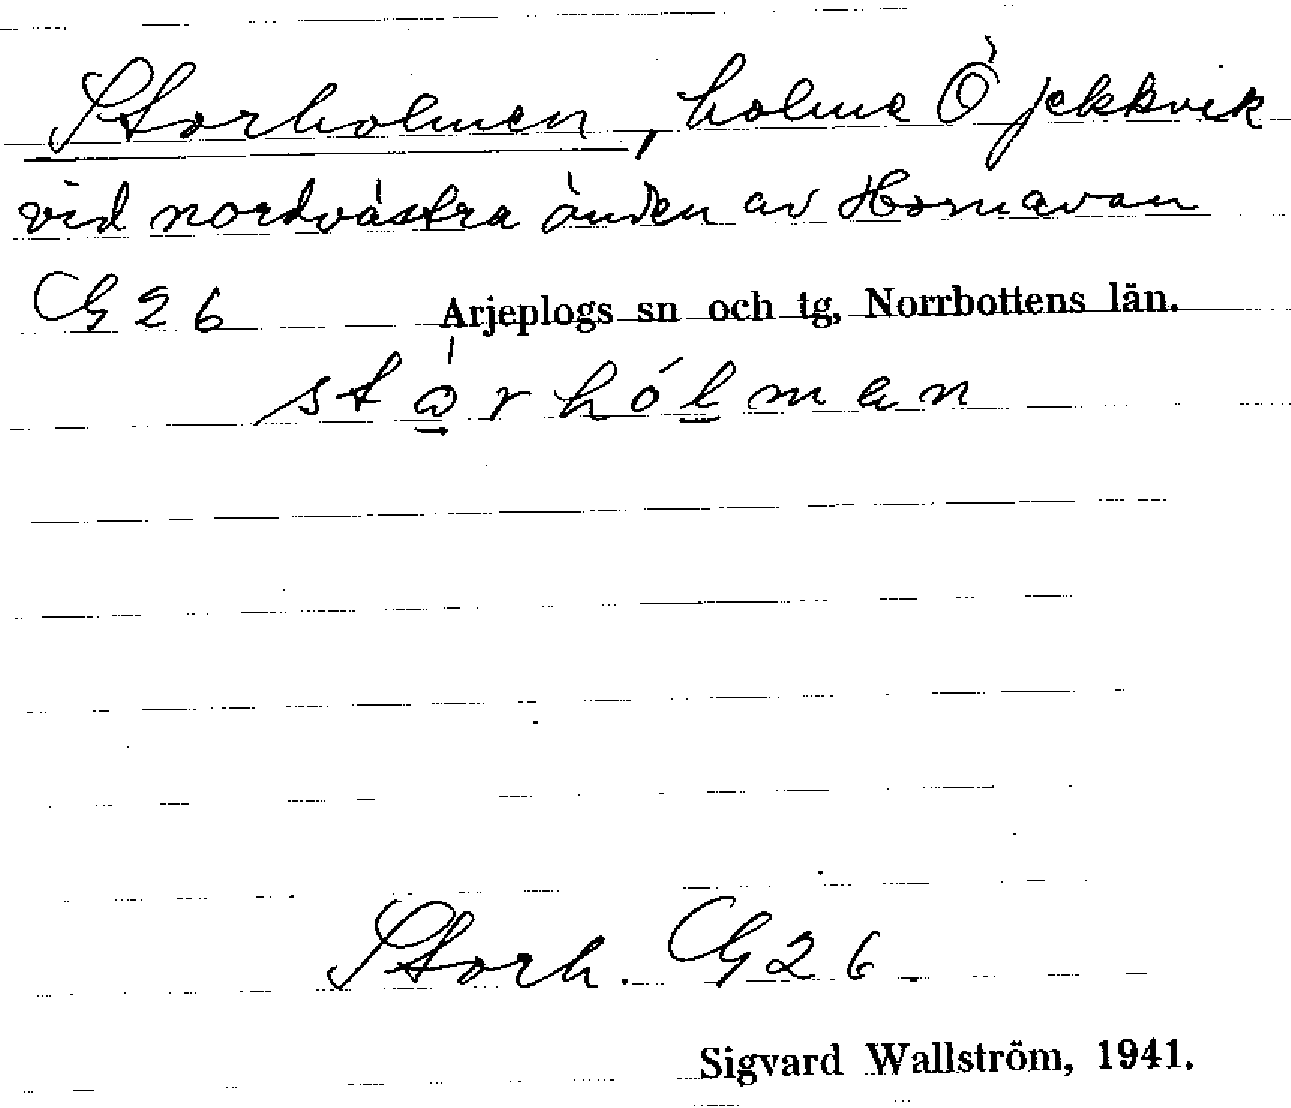 Storholmen, holme Ö Jekkvik
vid nordvästra änden av Hornavan
G 26 Arjeplogs sn och tg, Norrbottens län.
Storh. G 26
Sigvard Wallström, 1941.